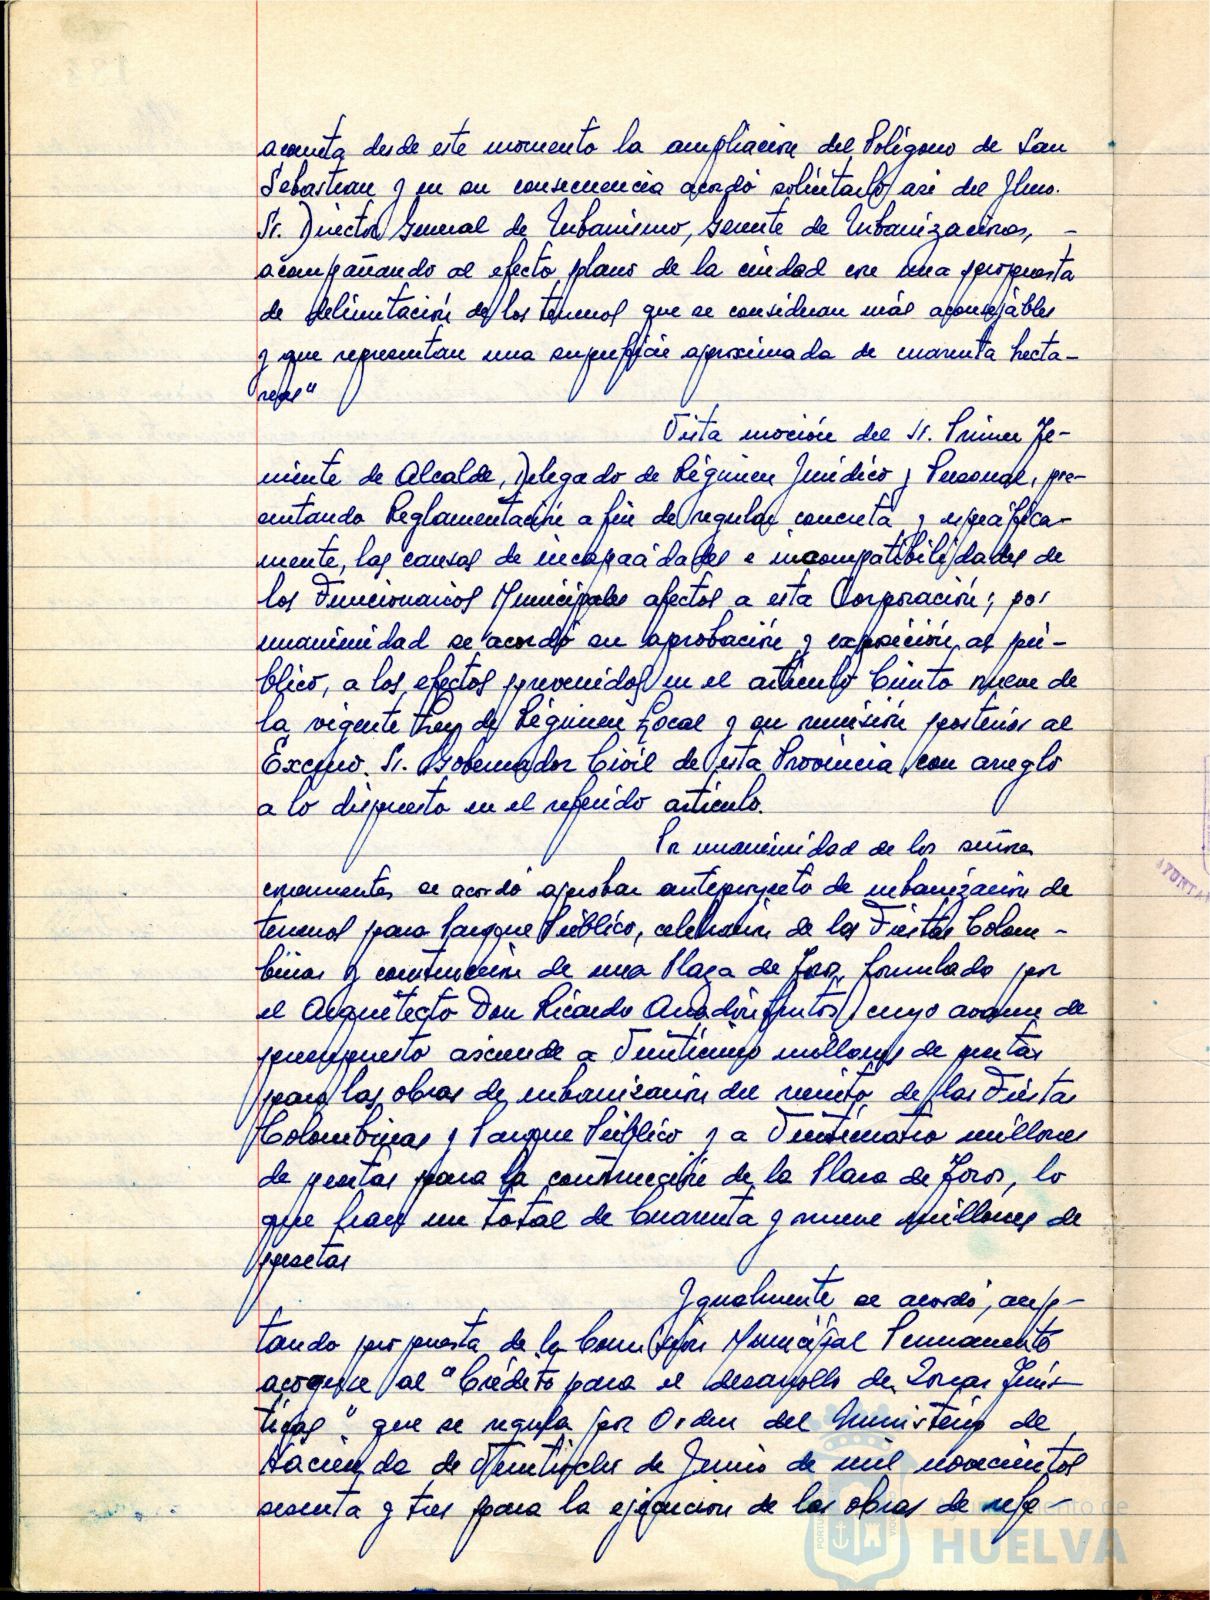 acometa desde este momento la ampliación del Polígono de San
Sebastian y en su consecuencia acordó solicitarlo asi del Ilmo.
Sr. Director General de Urbanismo, Gerente de Urbanizacion, -
acompañando al efecto plano de la ciudad con una propuesta
de delimitación de los terrenos que se consideran más aconsejables
y que representan una superficie aproximada de cuarenta hecta-
reas"
Vista moción del Sr. Primer Te-
niente de Alcalde, Delegado de Régimen Jurídico y Personal, pre-
sentando Reglamentación a fin de regular concreta y específica-
mente, las causas de incapacidades e incompatibilidades de
los Funcionarios Municipales afectos a esta Corporación; por
unanimidad se acordó su aprobación y exposición al pú-
blico, a los efectos prevenidos en el artículo Ciento nueve de
la vigente Ley de Régimen Local y su remisión posterior al
Excmo. Sr. Gobernador Civil de esta Provincia con arreglo
a lo dispuesto en el referido artículo.
Por unanimidad de los señores
concurrentes se acordó aprobar anteproyecto de urbanización de
terrenos para Parque Público, celebración de las Fiestas Colom-
binas y construcción de una Plaza de Toros, formulado por
el Arquitecto Don Ricardo Anadón Frutos, cuyo avance de
presupuesto asciende a Veinticinco millones de pesetas
para las obras de urbanización del recinto de las Fiestas
Colombinas y Parque Público y a Veinticuatro millones
de pesetas para la construcción de la Plaza de Toros, lo
que hace un total de Cuarenta y nueve millones de
pesetas
Igualmente se acordó, acep-
tando propuesta de la Comisión Municipal Permanente
acogerse al "Crédito para el desarrollo de Zonas Turís-
ticas" que se regula por Orden del Ministerio de
Hacienda de Veintiocho de Junio de mil novecientos
sesenta y tres para la ejecución de las obras de refe-
Ayuntamiento de
HUELVA